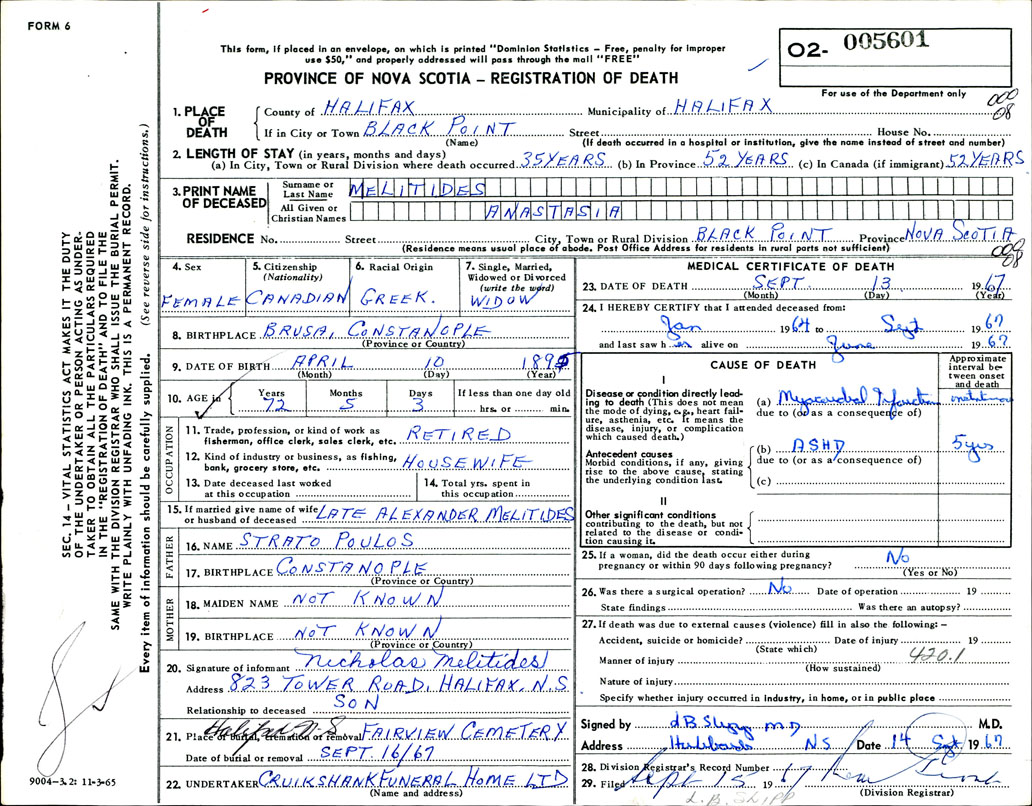 FORM 6
This form, if placed in an envelope, on which is printed "Dominion Statistics – Free, penalty for improper
use $50," and properly addressed will pass through the mail "FREE"
PROVINCE OF NOVA SCOTIA – REGISTRATION OF DEATH
O2- 005601
For use of the Department only
000
08
1. PLACE OF DEATH
County of HALIFAX Municipality of HALIFAX
If in City or Town BLACK POINT Street House No.
(Name) (If death occurred in a hospital or institution, give the name instead of street and number)
2. LENGTH OF STAY (in years, months and days)
(a) In City, Town or Rural Division where death occurred 35 YEARS (b) In Province 52 YEARS (c) In Canada (if immigrant) 52 YEARS
3. PRINT NAME OF DECEASED
Surname or Last Name MELITIDES
All Given or Christian Names ANASTASIA
RESIDENCE No. Street City, Town or Rural Division BLACK POINT Province NOVA SCOTIA
(Residence means usual place of abode. Post Office Address for residents in rural parts not sufficient)
000
08
4. Sex
FEMALE
5. Citizenship
(Nationality)
CANADIAN
6. Racial Origin
GREEK.
7. Single, Married,
Widowed or Divorced
(write the word)
WIDOW
8. BIRTHPLACE BRUSA, CONSTANOPLE
(Province or Country)
9. DATE OF BIRTH APRIL 10 1895
(Month) (Day) (Year)
10. AGE in
Years Months Days If less than one day old
72 5 3 hrs. or min.
OCCUPATION
11. Trade, profession, or kind of work as
fisherman, office clerk, sales clerk, etc. RETIRED
12. Kind of industry or business, as fishing,
bank, grocery store, etc. HOUSEWIFE
13. Date deceased last worked
at this occupation
14. Total yrs. spent in
this occupation
15. If married give name of wife
or husband of deceased LATE ALEXANDER MELITIDES
FATHER
16. NAME STRATO POULOS
17. BIRTHPLACE CONSTANOPLE
(Province or Country)
MOTHER
18. MAIDEN NAME NOT KNOWN
19. BIRTHPLACE NOT KNOWN
(Province or Country)
20. Signature of informant Nicholas Melitides
Address 823 TOWER ROAD, HALIFAX, N.S
Relationship to deceased SON
21. Place of burial, cremation or removal Halifax N.S FAIRVIEW CEMETERY
Date of burial or removal SEPT. 16/67
22. UNDERTAKER CRUIKSHANK FUNERAL HOME LTD
(Name and address)
MEDICAL CERTIFICATE OF DEATH
23. DATE OF DEATH SEPT. 13 1967
(Month) (Day) (Year)
24. I HEREBY CERTIFY that I attended deceased from:
Jan 1964 to Sept 1967
and last saw her alive on June 1967
CAUSE OF DEATH
Approximate
interval be-
tween onset
and death
I
Disease or condition directly lead-
ing to death (This does not mean
the mode of dying, e.g., heart fail-
ure, asthenia, etc. It means the
disease, injury, or complication
which caused death.)
(a) Myocardial Infarction
due to (or as a consequence of)
Antecedent causes
Morbid conditions, if any, giving
rise to the above cause, stating
the underlying condition last.
(b) ASHD 5 yrs
due to (or as a consequence of)
(c)
II
Other significant conditions
contributing to the death, but not
related to the disease or condi-
tion causing it.
25. If a woman, did the death occur either during
pregnancy or within 90 days following pregnancy? No
(Yes or No)
26. Was there a surgical operation? No Date of operation 19
State findings Was there an autopsy?
27. If death was due to external causes (violence) fill in also the following: –
Accident, suicide or homicide? Date of injury 19
(State which)
Manner of injury 420.1
(How sustained)
Nature of injury
Specify whether injury occurred in industry, in home, or in public place
Signed by M.D M.D.
Address Hubbards N.S Date 14 Sept 1967
28. Division Registrar's Record Number
29. Filed Sept 15 1967
(Division Registrar)
SEC. 14 – VITAL STATISTICS ACT MAKES IT THE DUTY
OF THE UNDERTAKER OR PERSON ACTING AS UNDER-
TAKER TO OBTAIN ALL THE PARTICULARS REQUIRED
IN THE "REGISTRATION OF DEATH" AND TO FILE THE
SAME WITH THE DIVISION REGISTRAR WHO SHALL ISSUE THE BURIAL PERMIT.
WRITE PLAINLY WITH UNFADING INK. THIS IS A PERMANENT RECORD.
Every item of information should be carefully supplied. (See reverse side for instructions.)
9004-3.2: 11-3-65